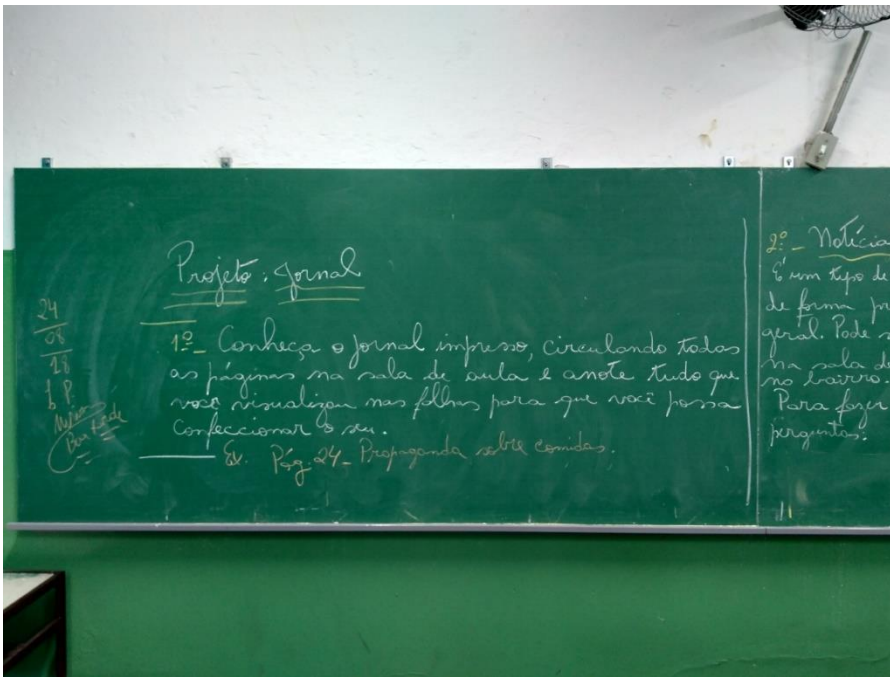 Projeto: Jornal
1º - Conheça o jornal impresso, circulando todas
as páginas na sala de aula e anote tudo que
você visualizou nas folhas para que você possa
confeccionar o seu.
Ex. Pág. 24 - Propaganda sobre comidas.
24
08
18
P.
Boa tarde
2º - Notícia
É um tipo de
de forma
geral. Pode
na sala de
no bairro.
Para fazer
perguntas: